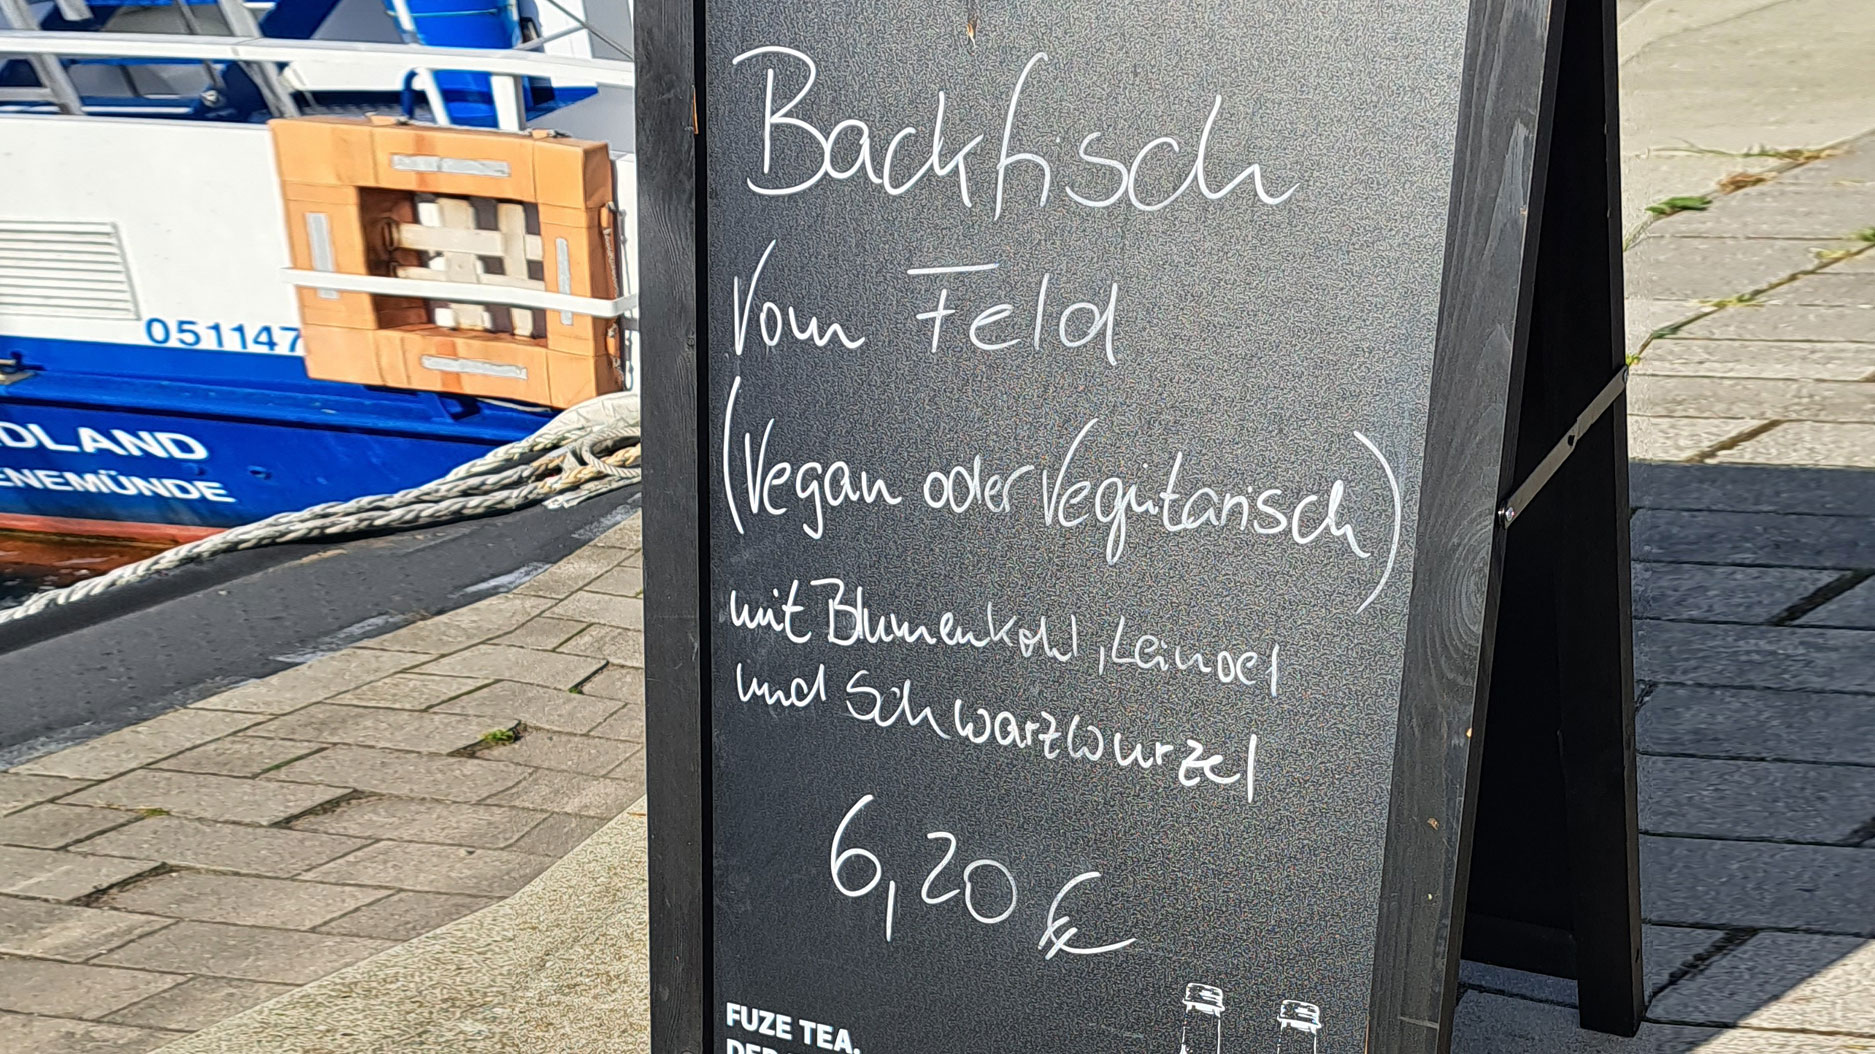 051147
DLAND
ENEMÜNDE
Backfisch
Vom Feld
(Vegan oder Vegitarisch)
mit Blumenkohl, Leinoel
und Schwarzwurzel
6,20 €
FUZE TEA.